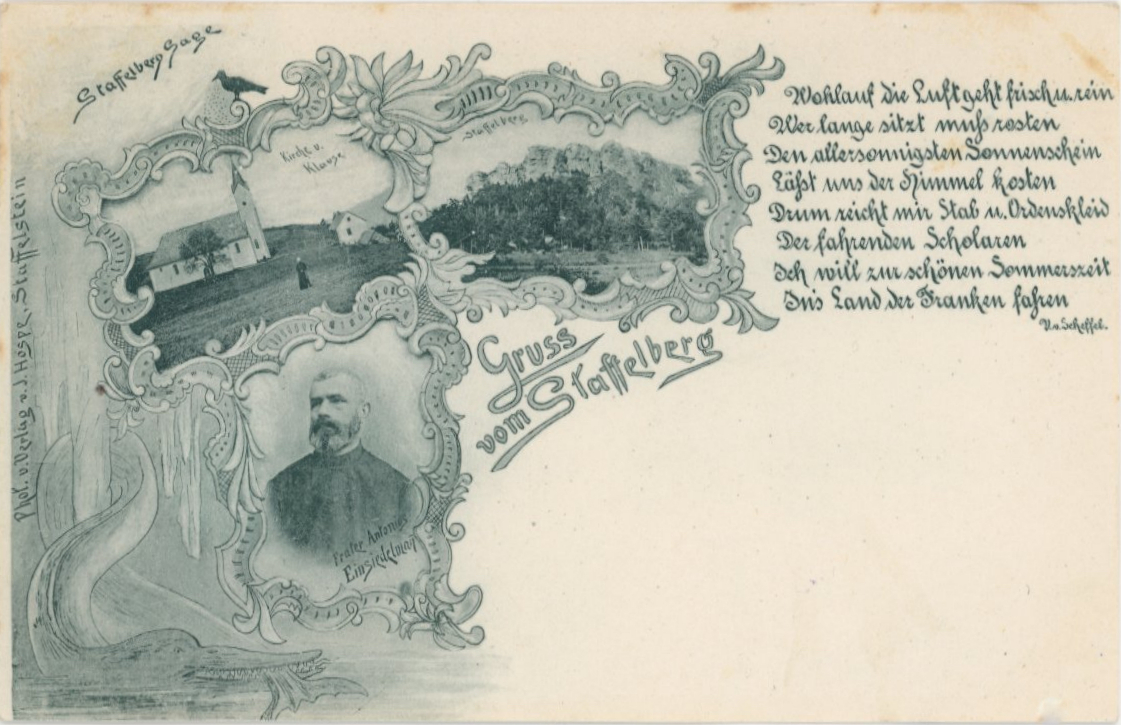 Staffelberg Sage
Kirche u.
Klause
Staffelberg
Wohlauf die Luft geht frisch u. rein
Wer lange sitzt muß rosten
Den allersonnigsten Sonnenschein
Läßt uns der Himmel kosten
Drum reicht mir Stab u. Ordenskleid
Der fahrenden Scholaren
Ich will zur schönen Sommerszeit
In's Land der Franken fahren
V. v. Scheffel.
Gruss
vom Staffelberg
Frater Antonius
Einsiedelman
Phot. u. Verlag v. J. Hospe, Staffelstein